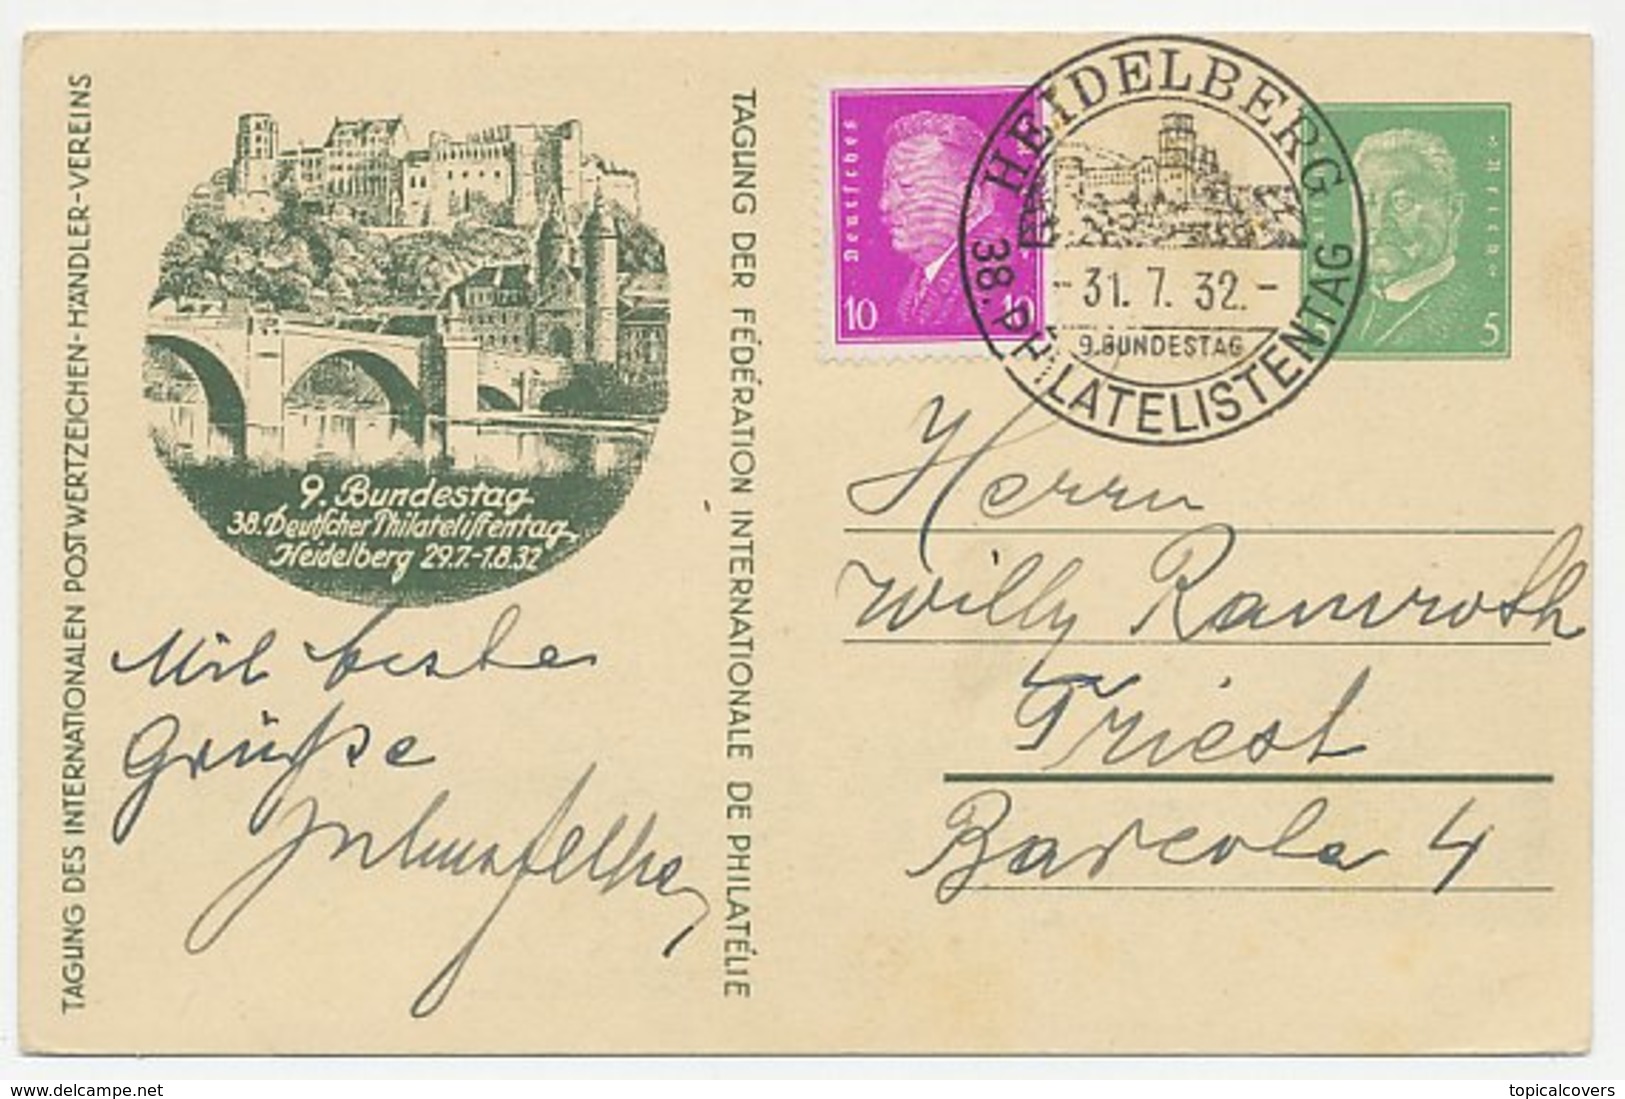 TAGUNG DES INTERNATIONALEN POSTWERTZEICHEN-HÄNDLER-VEREINS
9. Bundestag
38. Deutscher Philatelistentag
Heidelberg 29.7.-1.8.32
Mit beste
Grüße
TAGUNG DER FÉDÉRATION INTERNATIONALE DE PHILATÉLIE
Deutsches
10 10
HEIDELBERG
-31.7.32.-
9.BUNDESTAG
38. PHILATELISTENTAG
5 5
Herrn
Willy Ramroth
Triest
Barcola 4
www.delcampe.net
topicalcovers